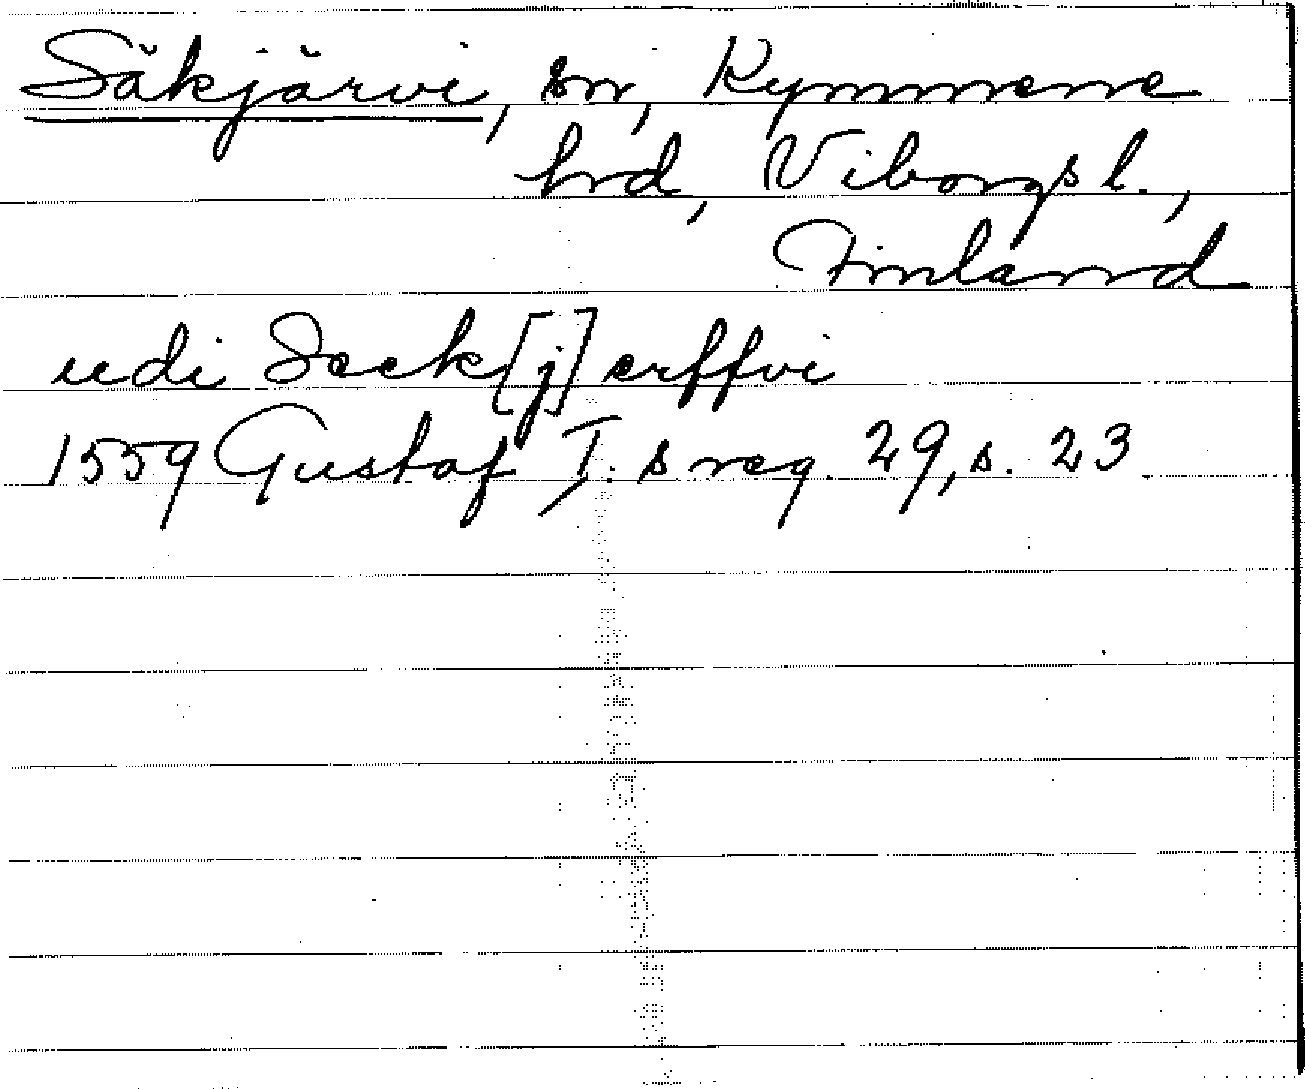 Säkjärvi, sn, Kymmene
hrd, Viborgs l.,
Finland
udi Seck[j]erffvi
1559 Gustaf I:s reg. 29, s. 23